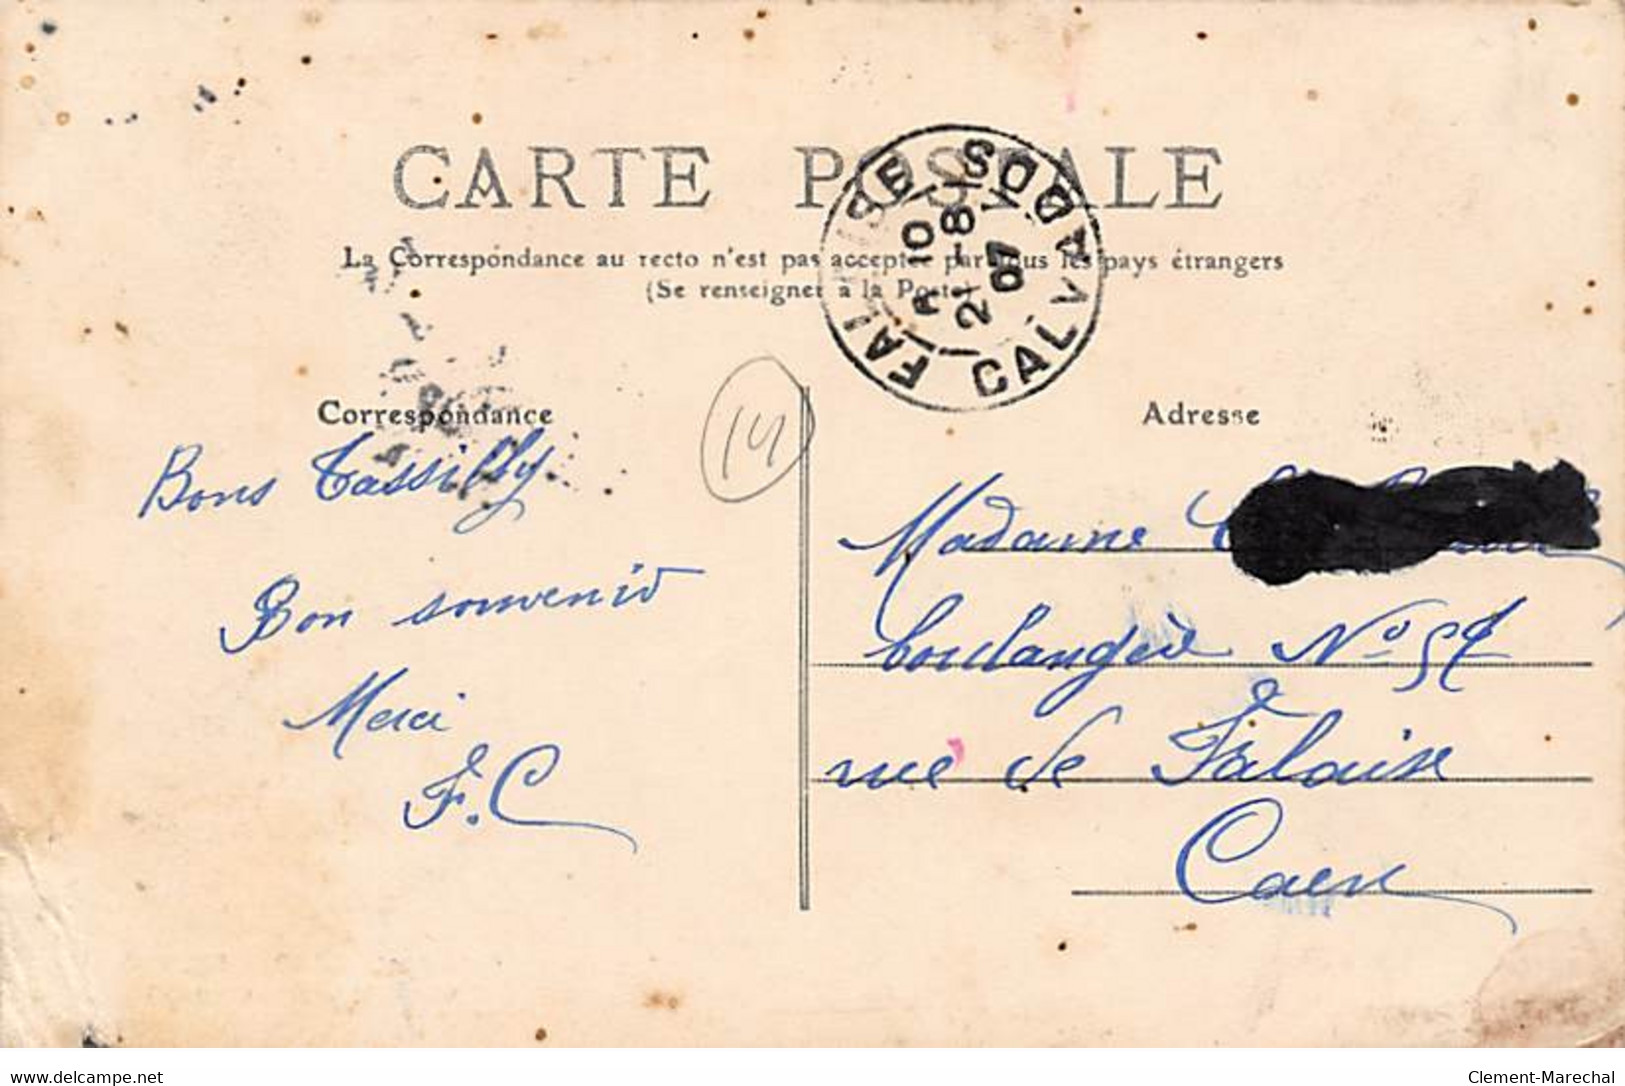 CARTE POSTALE
La Correspondance au recto n'est pas acceptée par tous les pays étrangers
(Se renseigner à la Poste)
FALAISE CALVADOS
10
21 -8
07
Correspondance
14
Adresse
Bons Tassilly
Bon souvenir
Merci
F.C
Madame
boulangère No 57
rue de Falaise
Caen
www.delcampe.net
Clement-Marechal